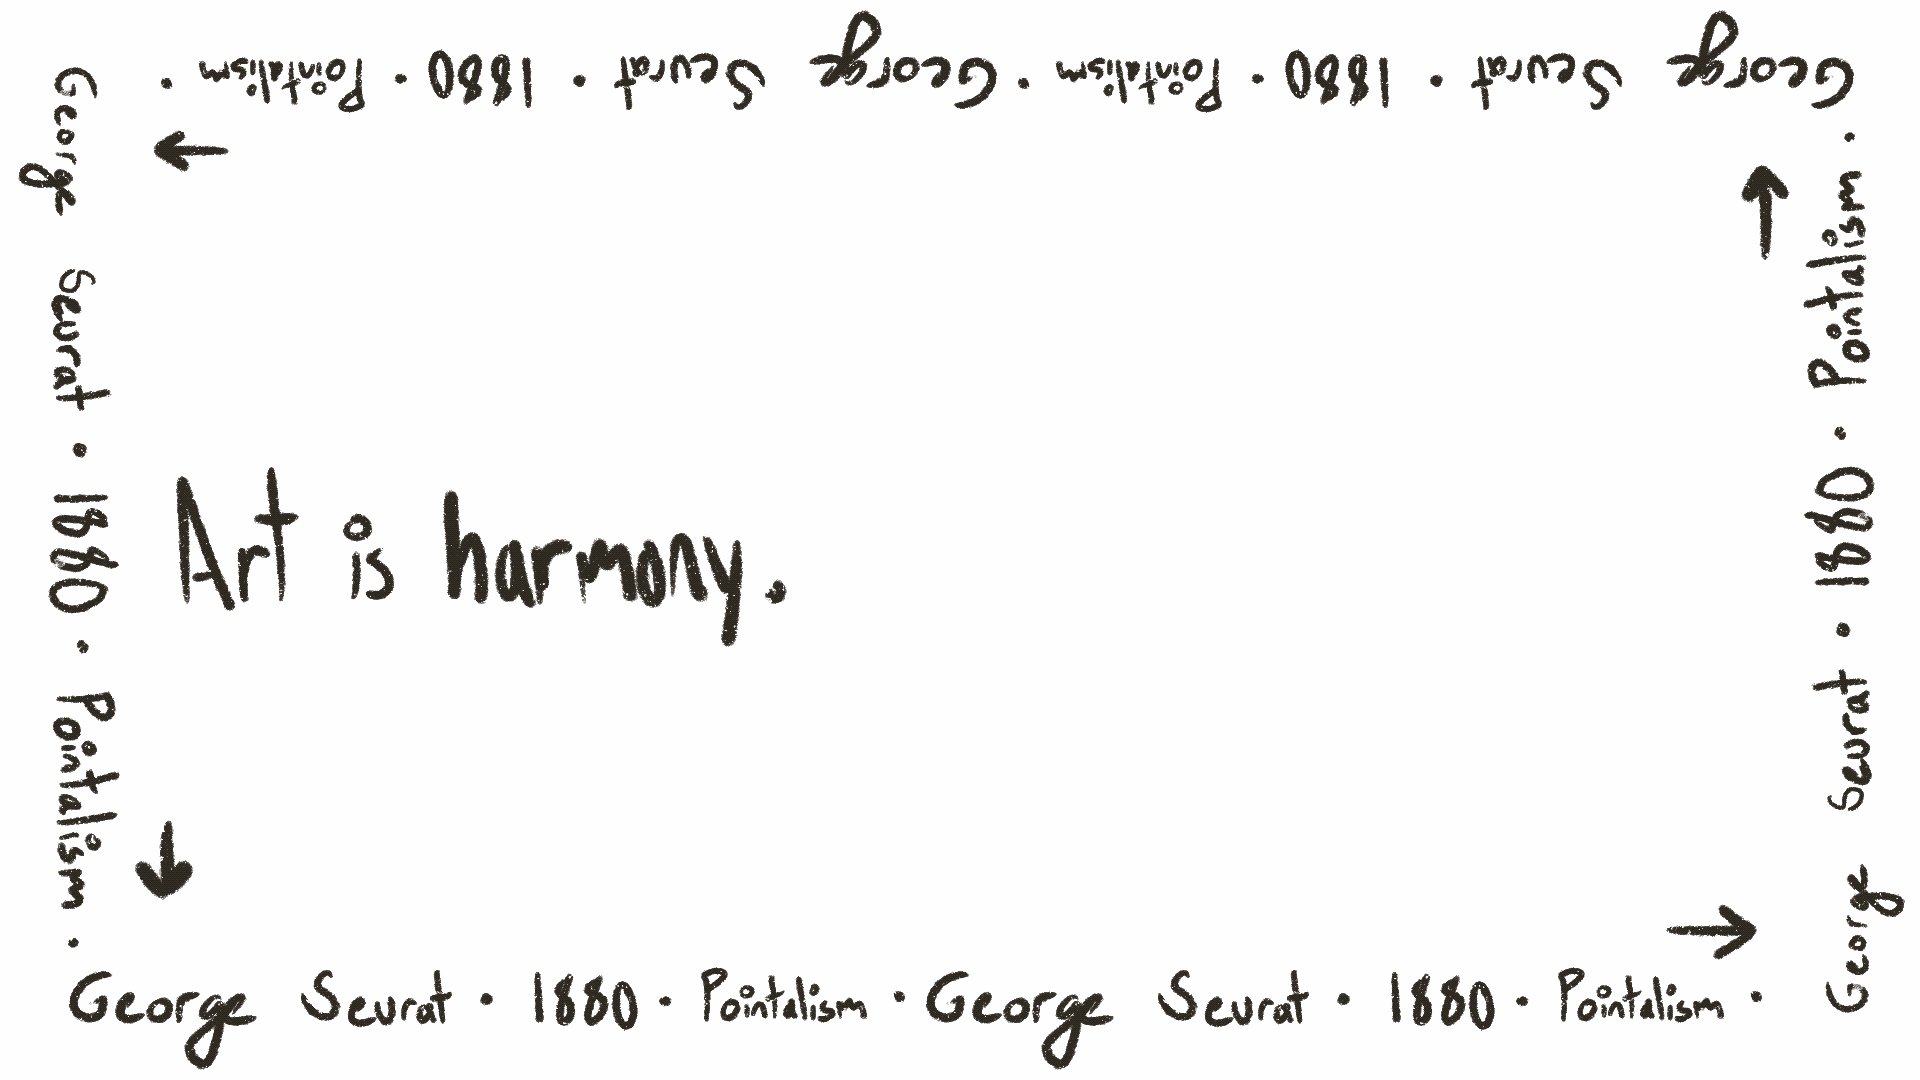 George Seurat · 1880 · Pointalism · George Seurat · 1880 · Pointalism ·
George Seurat · 1880 · Pointalism ·
Art is harmony.
George Seurat · 1880 · Pointalism · George Seurat · 1880 · Pointalism ·
George Seurat · 1880 · Pointalism ·